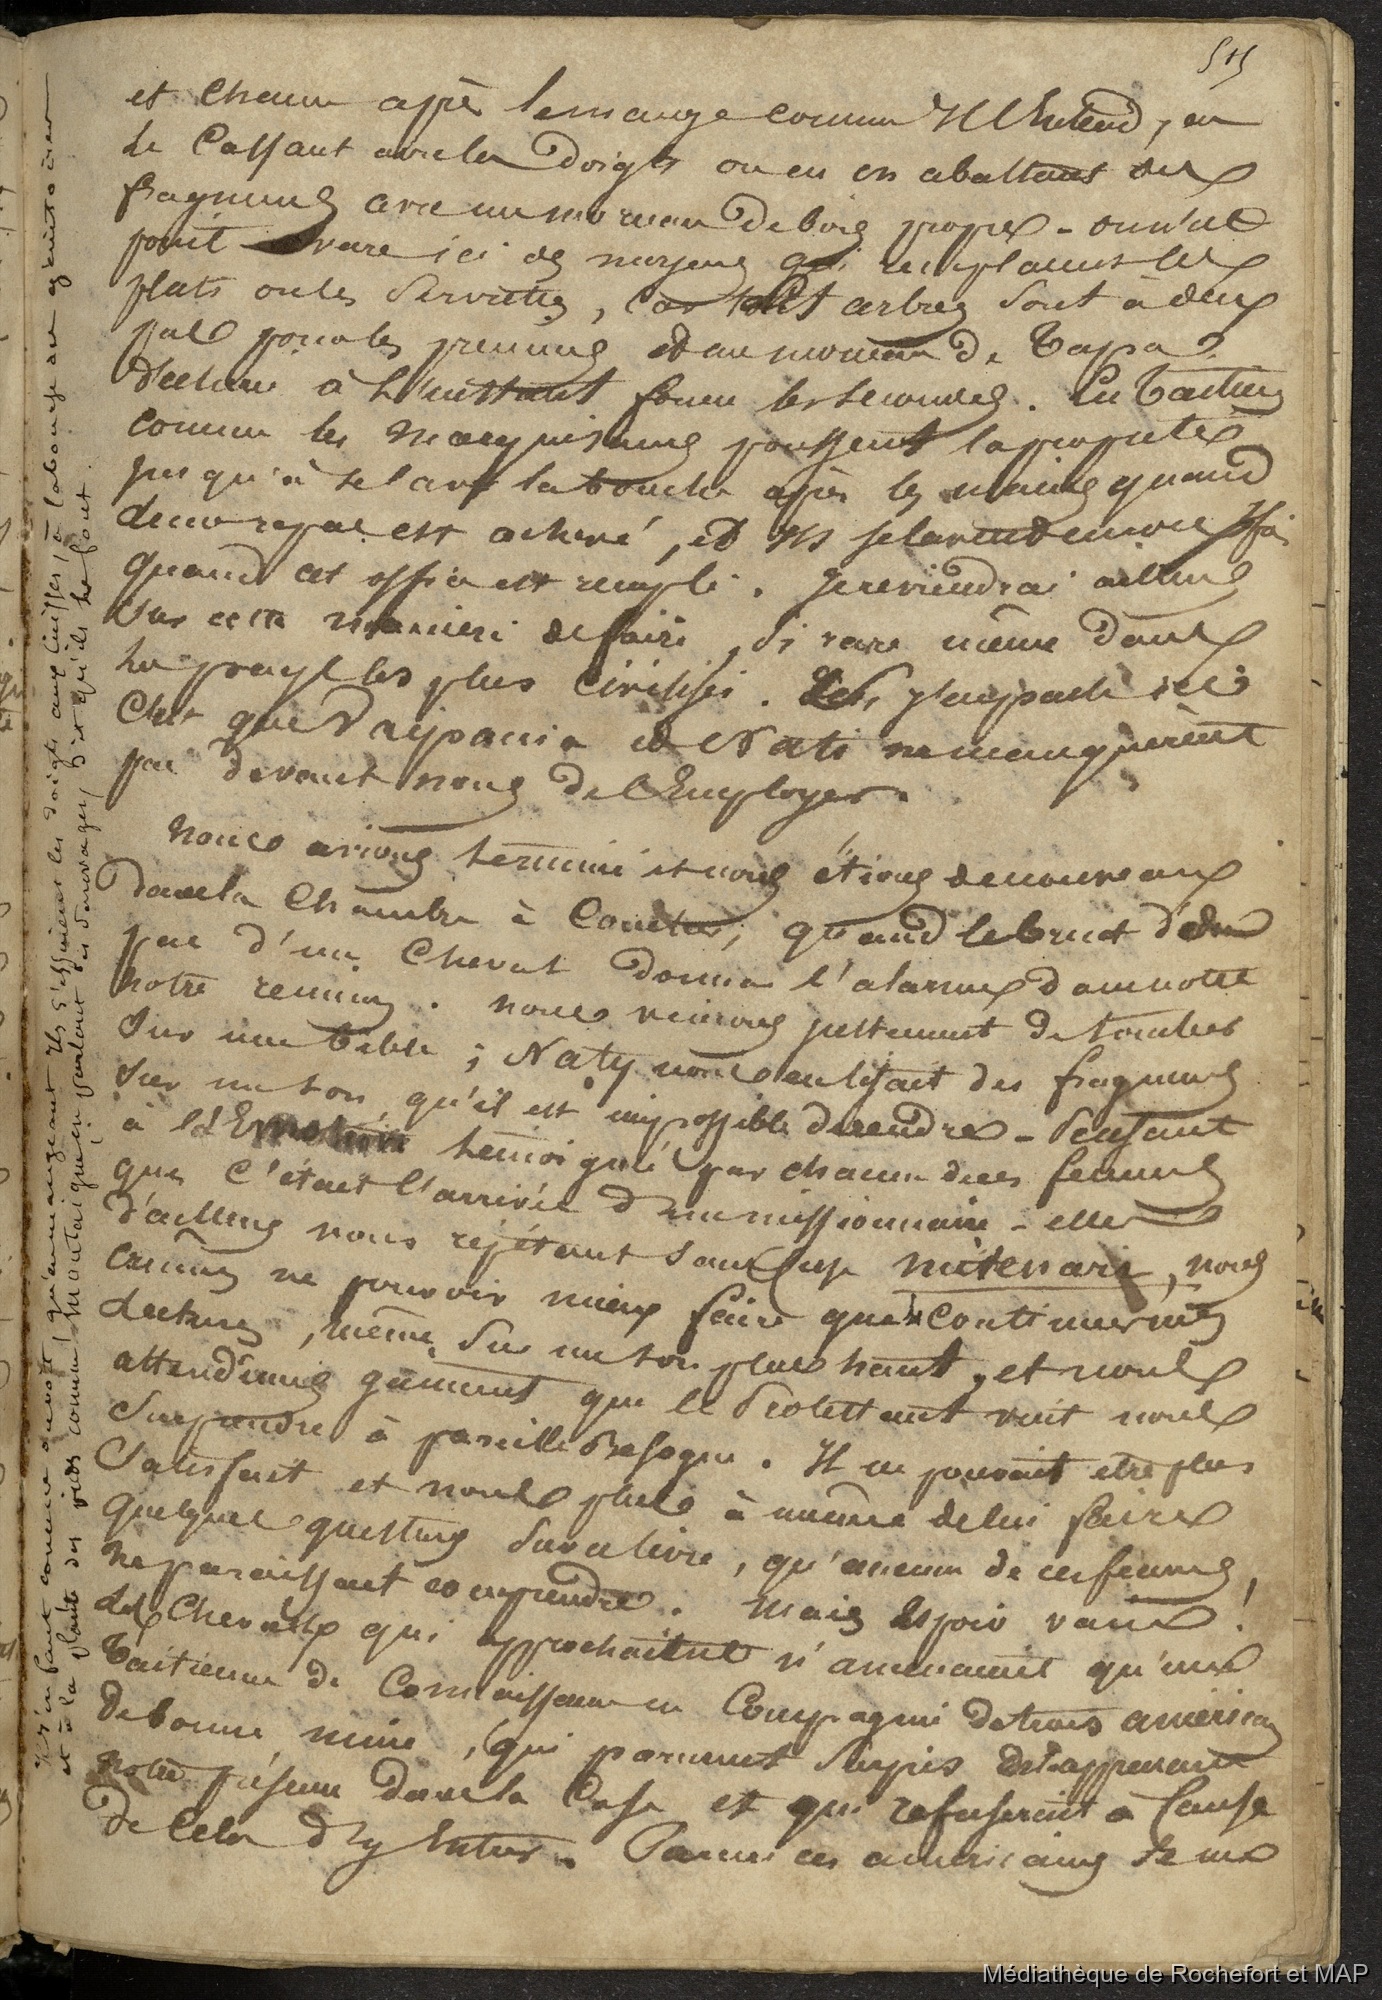 515
et chacun après le mange comme Il l'entend, en
le cassant avec les doigts ou en en abattant des
fragmens avec un morceau de bois propre - on n'est
point avare ici des moyens qui remplacent les
plats ou les serviettes, car tout arbres sont à deux
pas pour les premiers et un morceau de Tapa
déchiré à l'instant forme les secondes. Les Taïtiens
comme les marquisiens poussent la propreté
jusqu'à se laver la bouche après les mains quand
leur repas est achevé, et Ils se lavent encore
quand cet office est rempli. Je reviendrai ailleurs
sur cette manière de faire, si rare même dans
les pays les plus civilisés. Si j'en parle ici
C'est que Vaipania et Nati ne manquèrent
pas devant nous de l'Employer.
Nous avions terminé et nous étions de nouveau
dans la Chambre à coucher, quand le bruit des
pas d'un Cheval donna l'alarme dans notre
notre réunion. nous venions justement de tomber
sur une bible ; Naty nous en lisait des fragmens
sur un ton qu'il est impossible de rendre - Pensant
à l'Emotion témoignée par chacune de ces femmes
que C'était l'arrivée d'un missionnaire - elles
d'ailleurs nous répétant sans cesse mitenari, nous
crûmes ne pouvoir mieux faire que continuer nos
lectures, même sur un ton plus haut, et nous
attendîmes gaiment que le Protestant vint nous
surprendre à pareille besogne. Il ne pouvait être plus
satisfait et nous plus à même de lui faire
quelques questions sur ce livre, qu'aucun de ces femmes
ne paraissait comprendre. Mais espoir vain !
les Chevaux qui approchaient n'amenaient qu'une
Taïtienne de Connaissance en Compagnie de trois américains
de bonne mine, qui parurent surpris
notre présence dans la Case et qui refusèrent à Cause
de Cela d'y Entrer. Parmi ces américains
et à la plante des pieds comme Montaigne en parlant des sauvages, dit qu'ils le font.